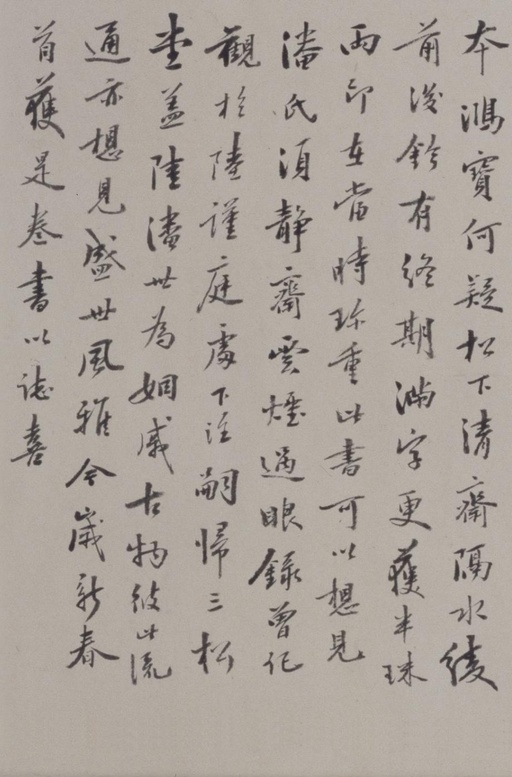 本鴻寶何疑松下清齋隔水綾
前後鈐有終期滿字更獲半珠
兩印在當時珍重此書可以想見
潘氏須靜齋雲煙過眼錄曾記
觀於陸謹庭處下注嗣歸三松
堂蓋陸潘世為姻戚古物彼此流
通亦想見盛世風雅今歲新春
首獲是卷書以誌喜